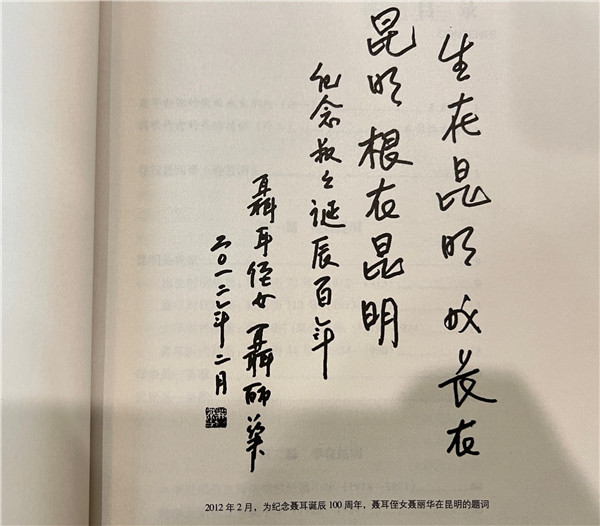 生在昆明 成长在
昆明 根在昆明
纪念叔叔诞辰百年
聂耳侄女聂丽华
二〇一二年二月
2012 年 2 月，为纪念聂耳诞辰 100 周年，聂耳侄女聂丽华在昆明的题词